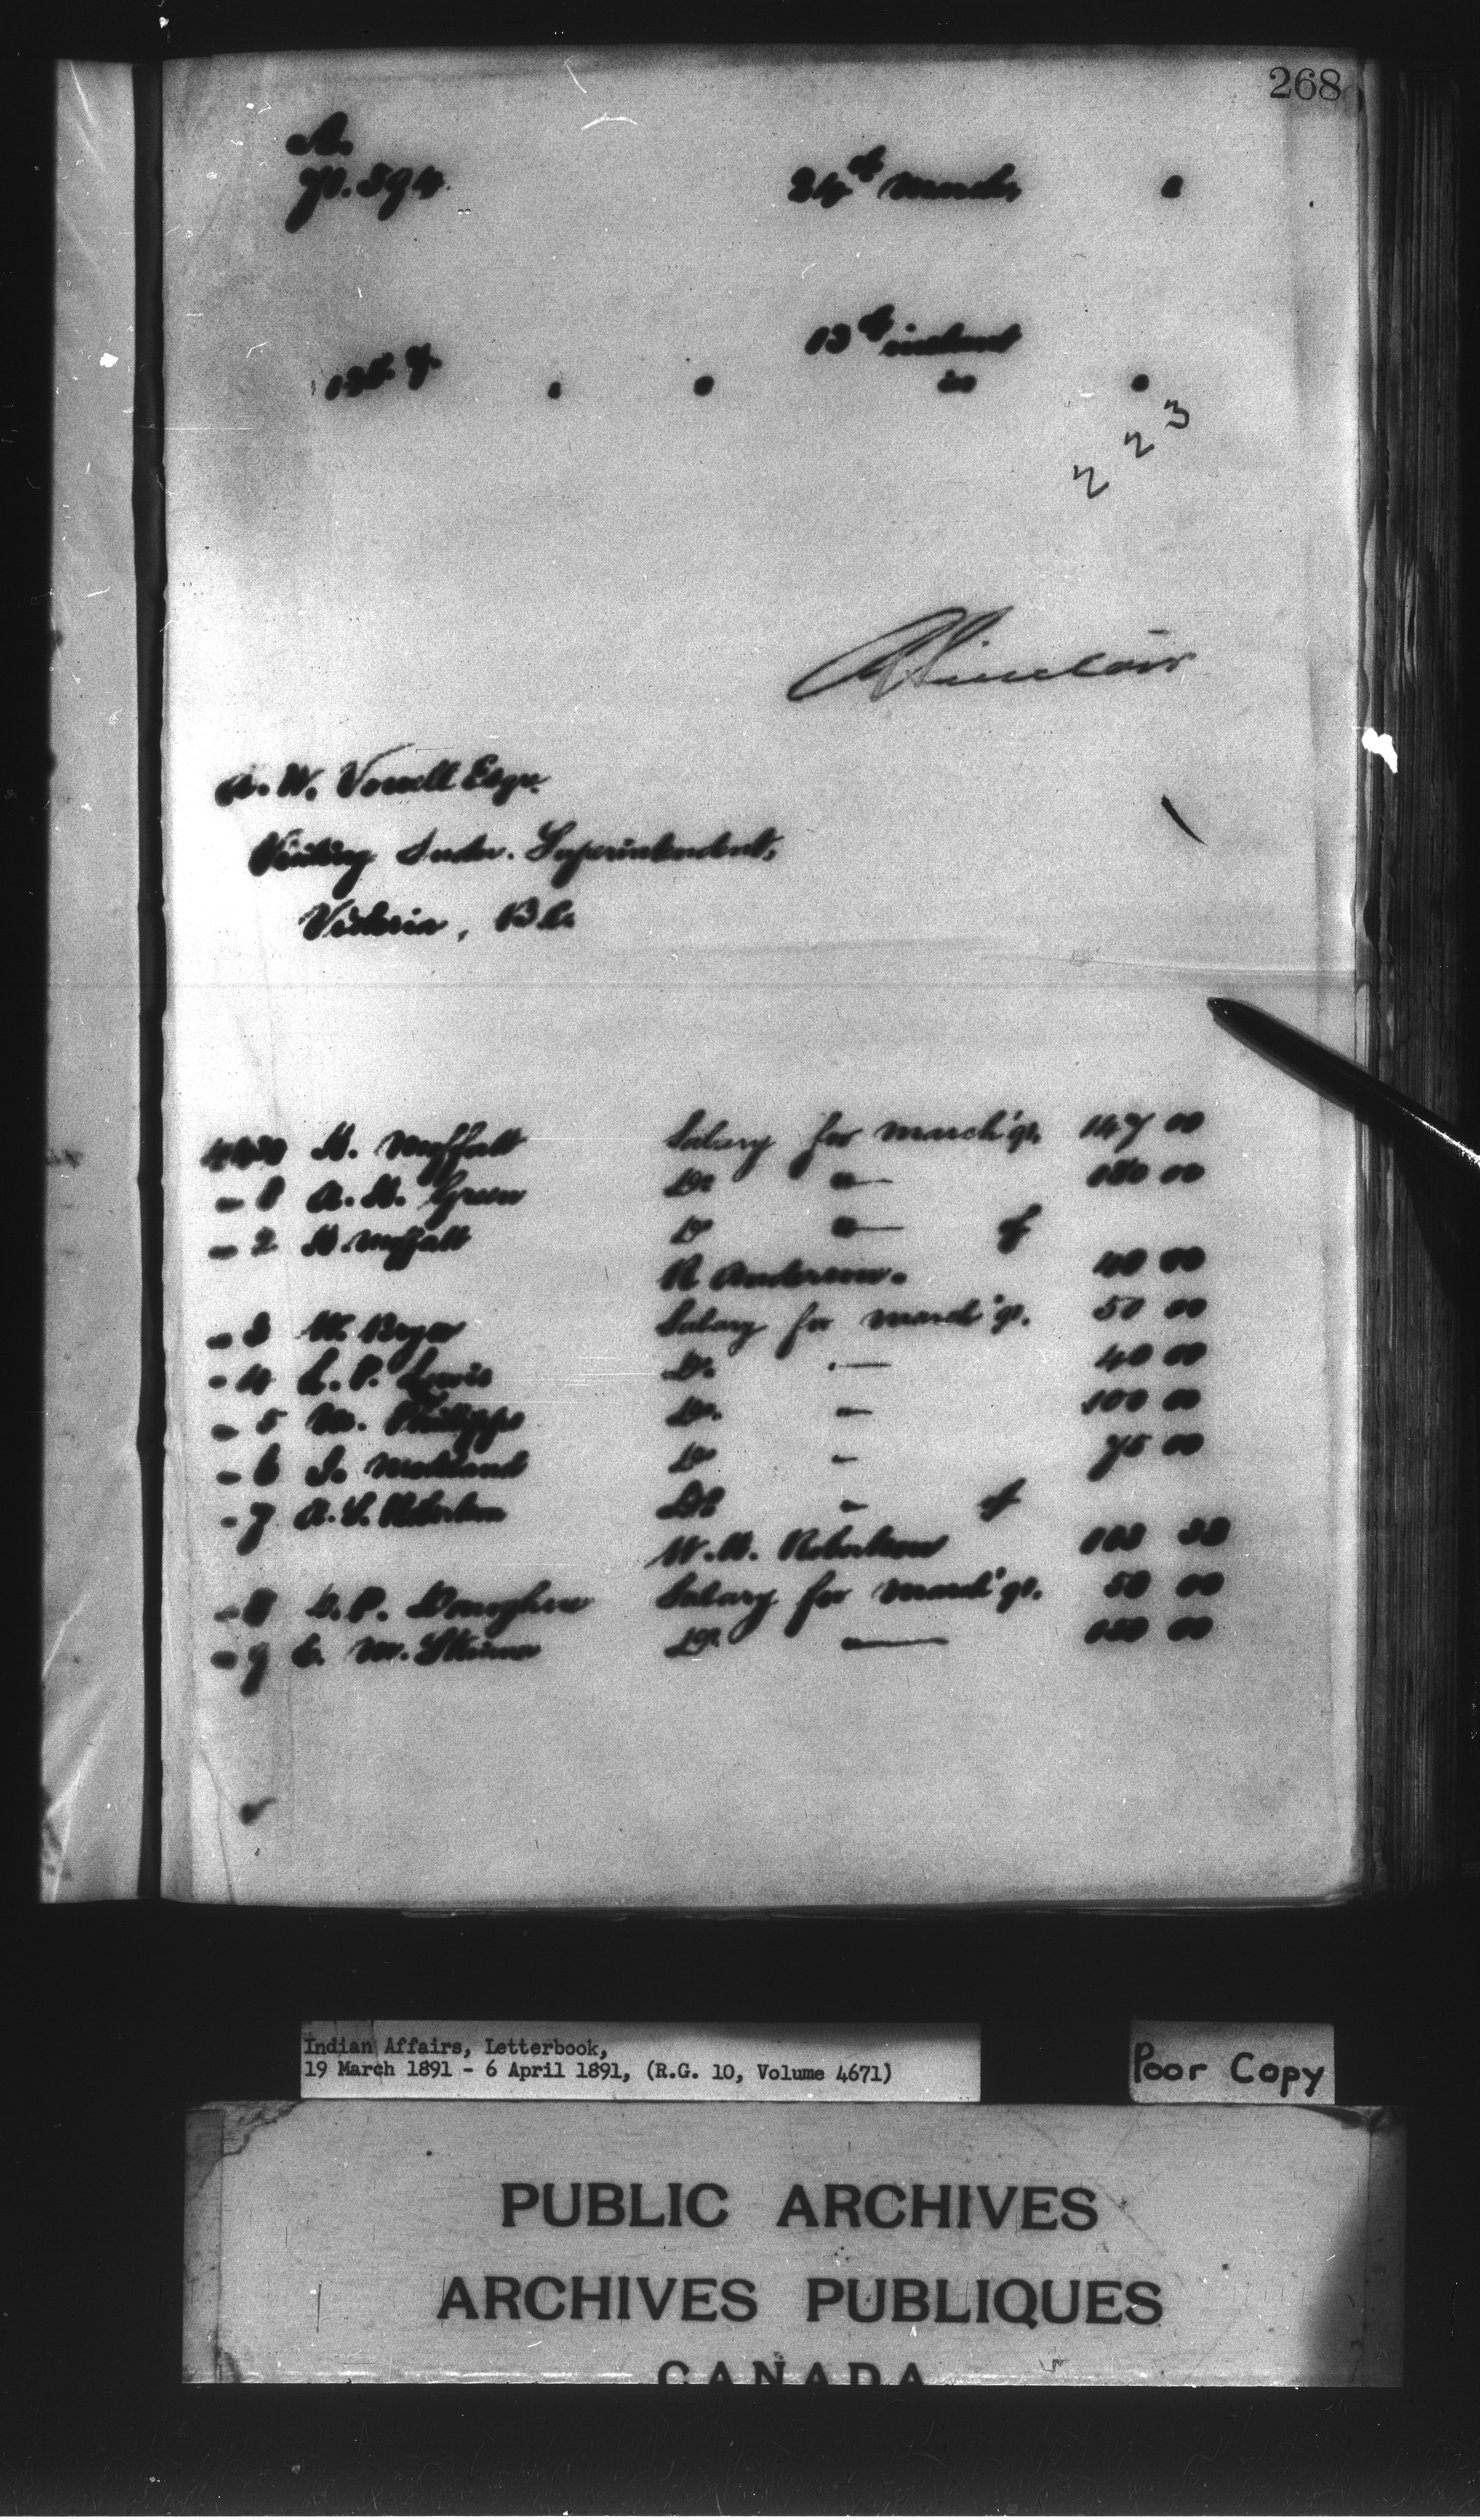 268
A.
p. 594. 24th March
13th instant
in
2 2 3
A Sinclair
A. W. Vowell Esqr.
Visiting Indn. Superintendent,
Victoria, B.C.
H. Moffatt Salary for March qr. 147 00
- 1 A. H. Green Do " 180 00
- 2 H. Moffatt Do " of
R Anderson. 40 00
- 3 Salary for March qr. 50 00
- 4 L. P. Lewis Do. " 40 00
- 5 M. Phillipps Do. " 100 00
- 6 Do " 75 00
- 7 A. S. Robertson Do " of
W. H. Robertson
- 8 D. P. Donoghue Salary for March qr. 50 00
- 9 E. M. Skinner Do " 150 00
Indian Affairs, Letterbook,
19 March 1891 - 6 April 1891, (R.G. 10, Volume 4671)
Poor Copy
PUBLIC ARCHIVES
ARCHIVES PUBLIQUES
CANADA